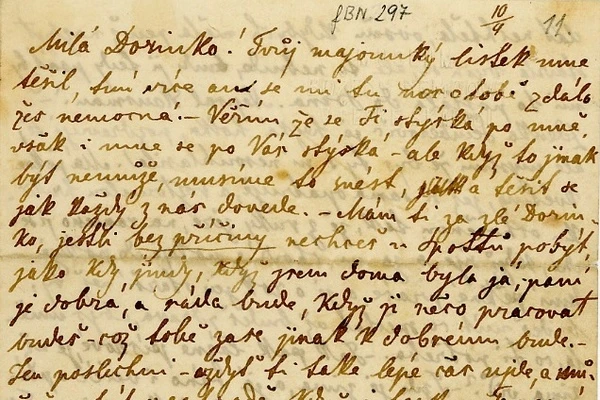 fBN 297 10/9 11.
Milá Dorinko! Tvůj majounký lístek mne
těšil, tím více an se mi tu noc o tobě zdálo
žes nemocná. – Věřím že se Ti stýská po mně,
však i mne se po Vás stýská – ale když to jinak
být nemůže, musíme to snést, a těšit se
jak každý z nás dovede. – Mám ti za zlé Dorin-
ko, jestli bez příčiny nechceš u Spottů pobýt,
jako kdy jindy, když jsem doma byla já; paní
je dobrá, a ráda bude, když jí něco pracovat
budeš – což tobě zase jinak k dobrému bude. –
Jen poslechni – však ti také lépe čas ujde, a